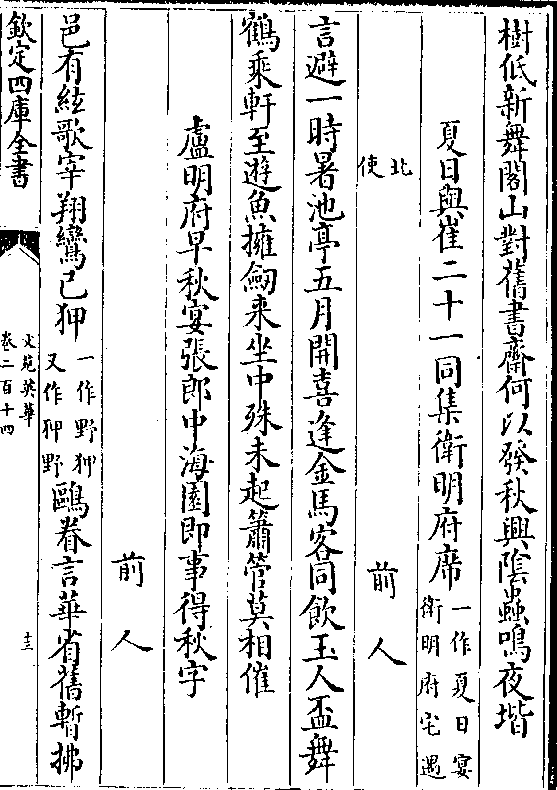 樹低新舞閣山對舊書齋何以發秋興陰蟲鳴夜堦
夏日與崔二十一同集衛明府席一作夏日宴衛明府宅遇
北使
前人
言避一時暑池亭五月開喜逢金馬客同飲玉人盃舞
鶴乘軒至遊魚擁釼来坐中殊未起簫管莫相催
盧明府早秋宴張郎中海園即事得秋字
前人
邑有絃歌宰翔鸞已狎一作野狎又作狎野鷗眷言華省舊暫拂
欽定四庫全書
文苑英華
卷二百十四
十三